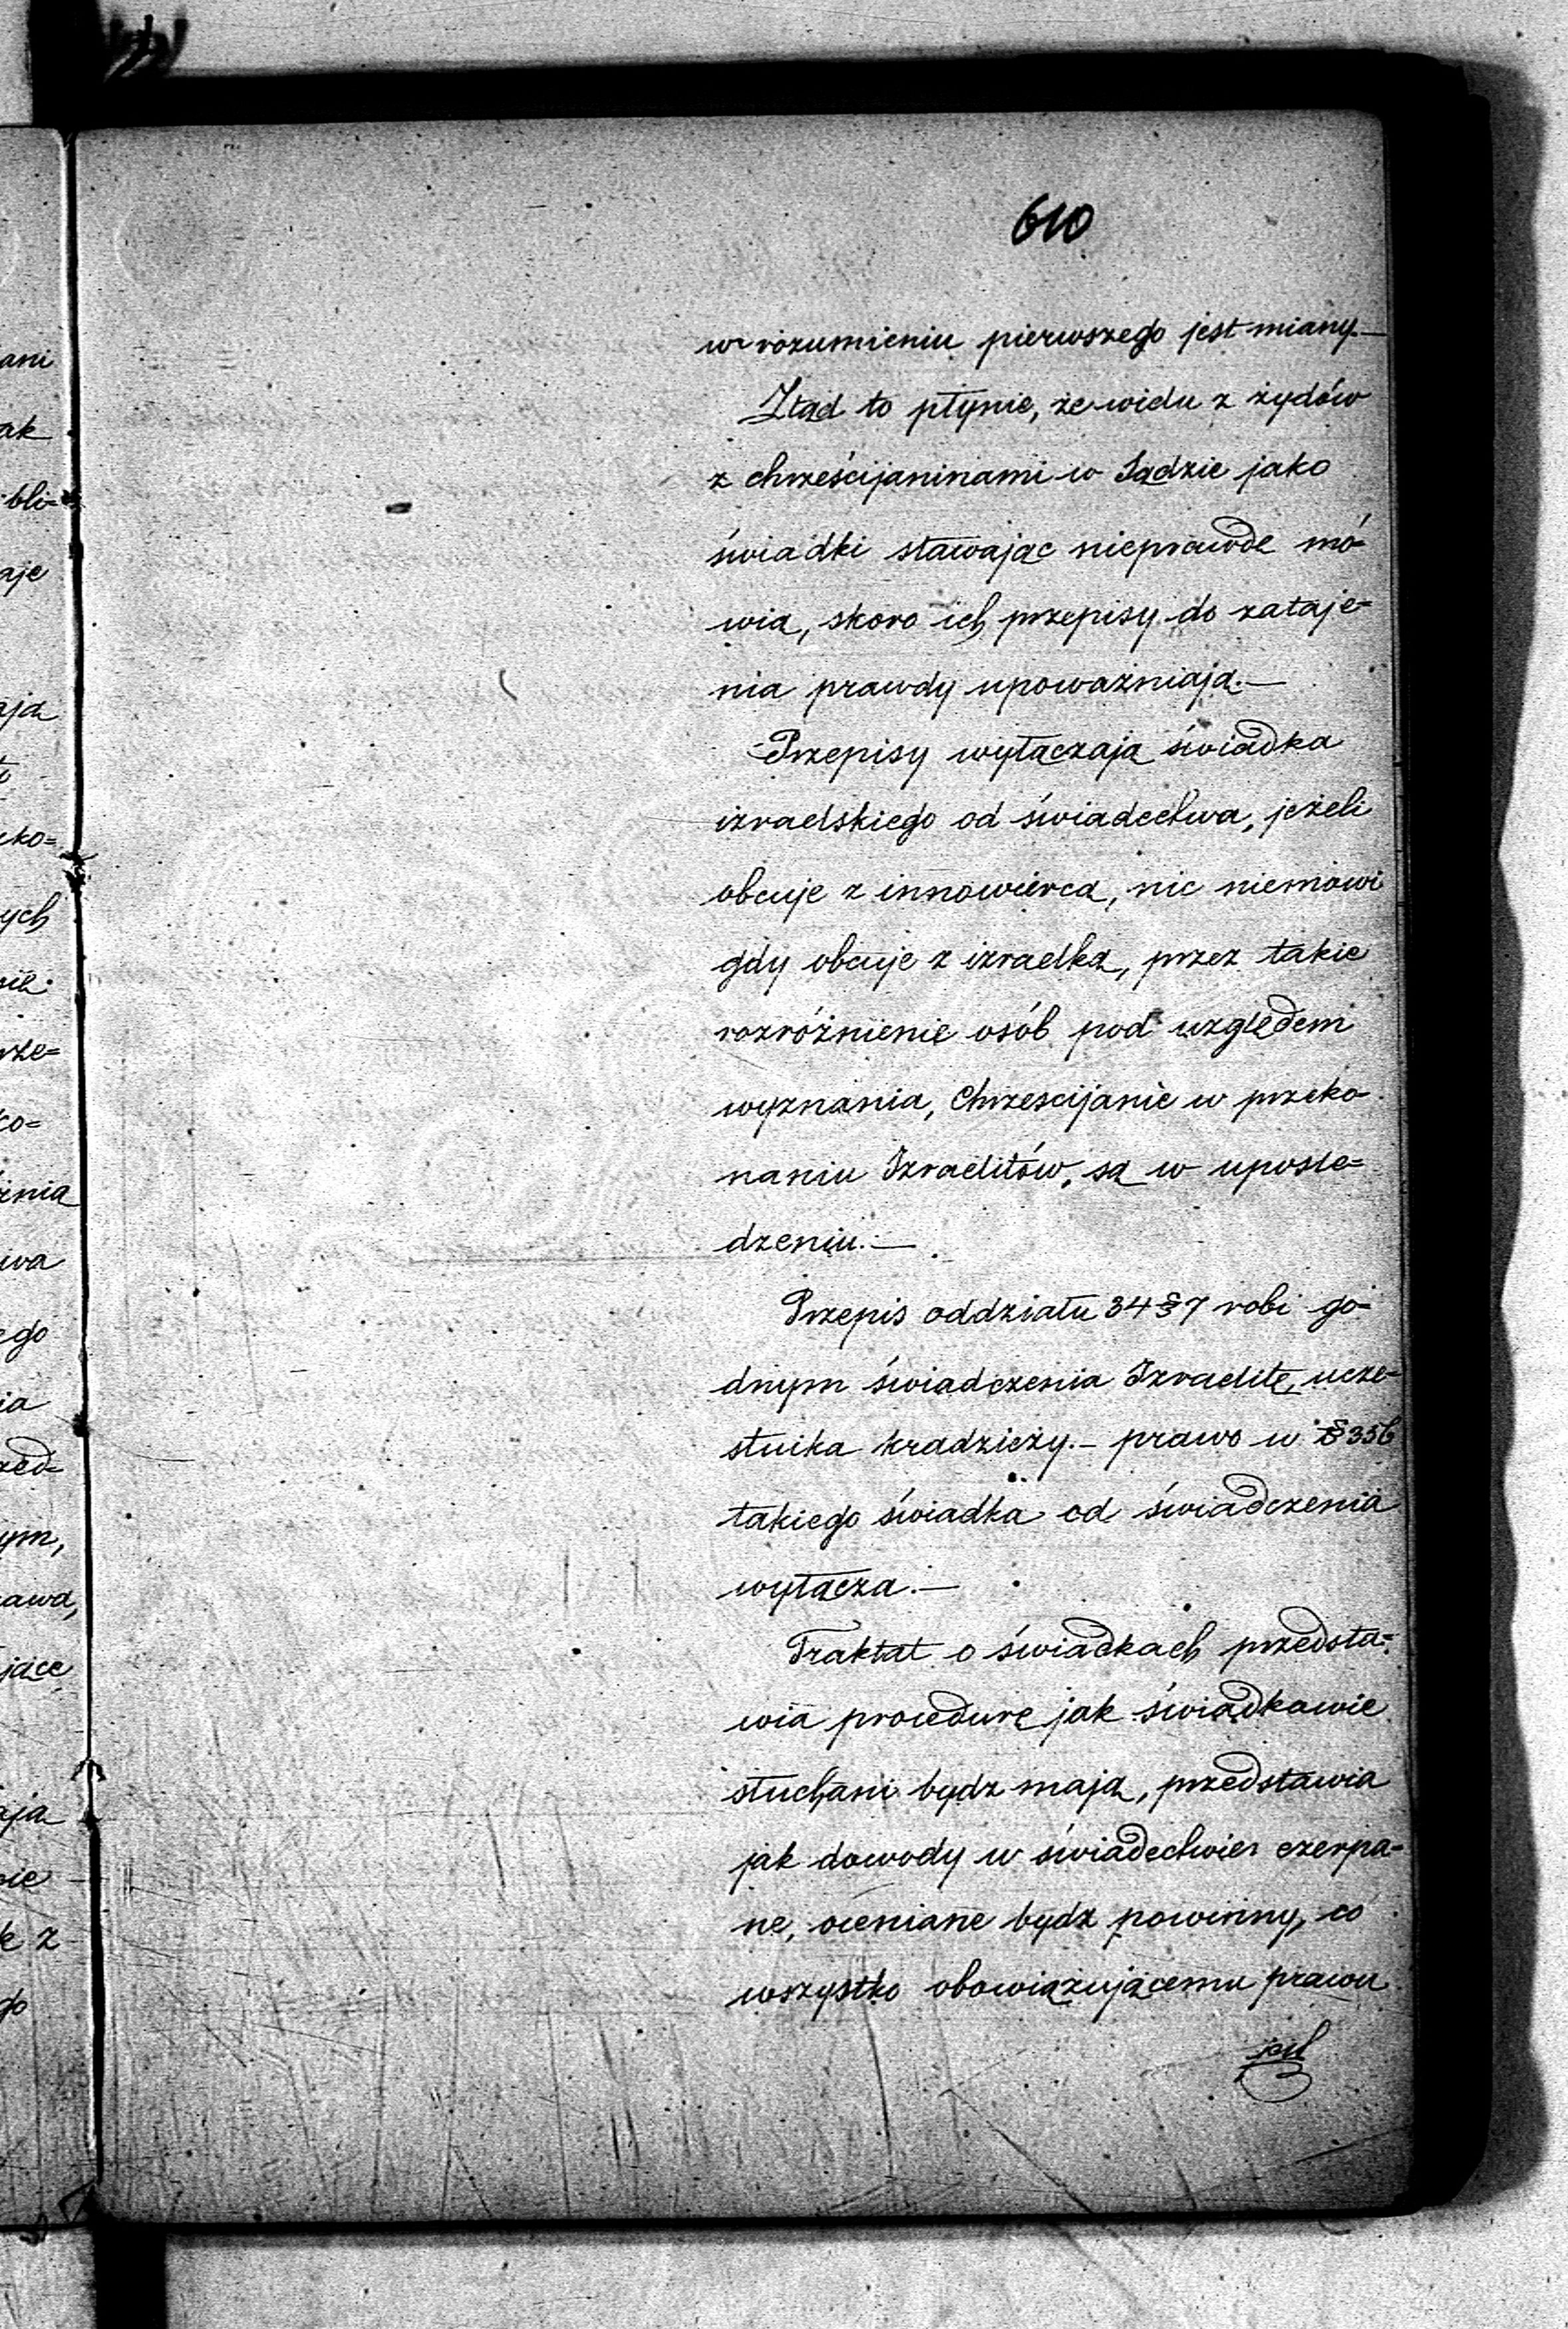 610
w rozumieniu pierwszego jest miany.—
Ztąd to płynie, że wielu z żydów
z chrześcijaninami w Sądzie jako
świadki stawając nieprawdę mó-
wią, skoro ich przepisy do zataje=
nia prawdy upoważniają.—
Przepisy wyłączają świadka
izraelskiego od świadectwa, jeżeli
obcuje z innowiercą, nic niemówi
gdy obcuje z izraelką, przez takie
rozróżnienie osób pod względem
wyznania, Chrześcijanie w przeko-
naniu Izraelitów, są w upośle=
dzeniu.—
Przepis oddziału 34 § 7 robi go=
dnym świadczenia Izraelitę, ucze-
stnika kradzieży.— prawo w § 336
takiego świadka od świadczenia
wyłącza.—
Traktat o świadkach przedsta=
wia procedurę jak świadkowie
słuchani bydz mają, przedstawia
jak dowody w świadectwie czerpa-
ne, oceniane bydz powinny, co
wszystko obowiązującemu prawu
jest
ani
ak
bli=
aje
ają
ko=
ych
rze=
ko=
wa
ego
ia
zed=
ym,
rawa,
jące
ają
nie
k z
go